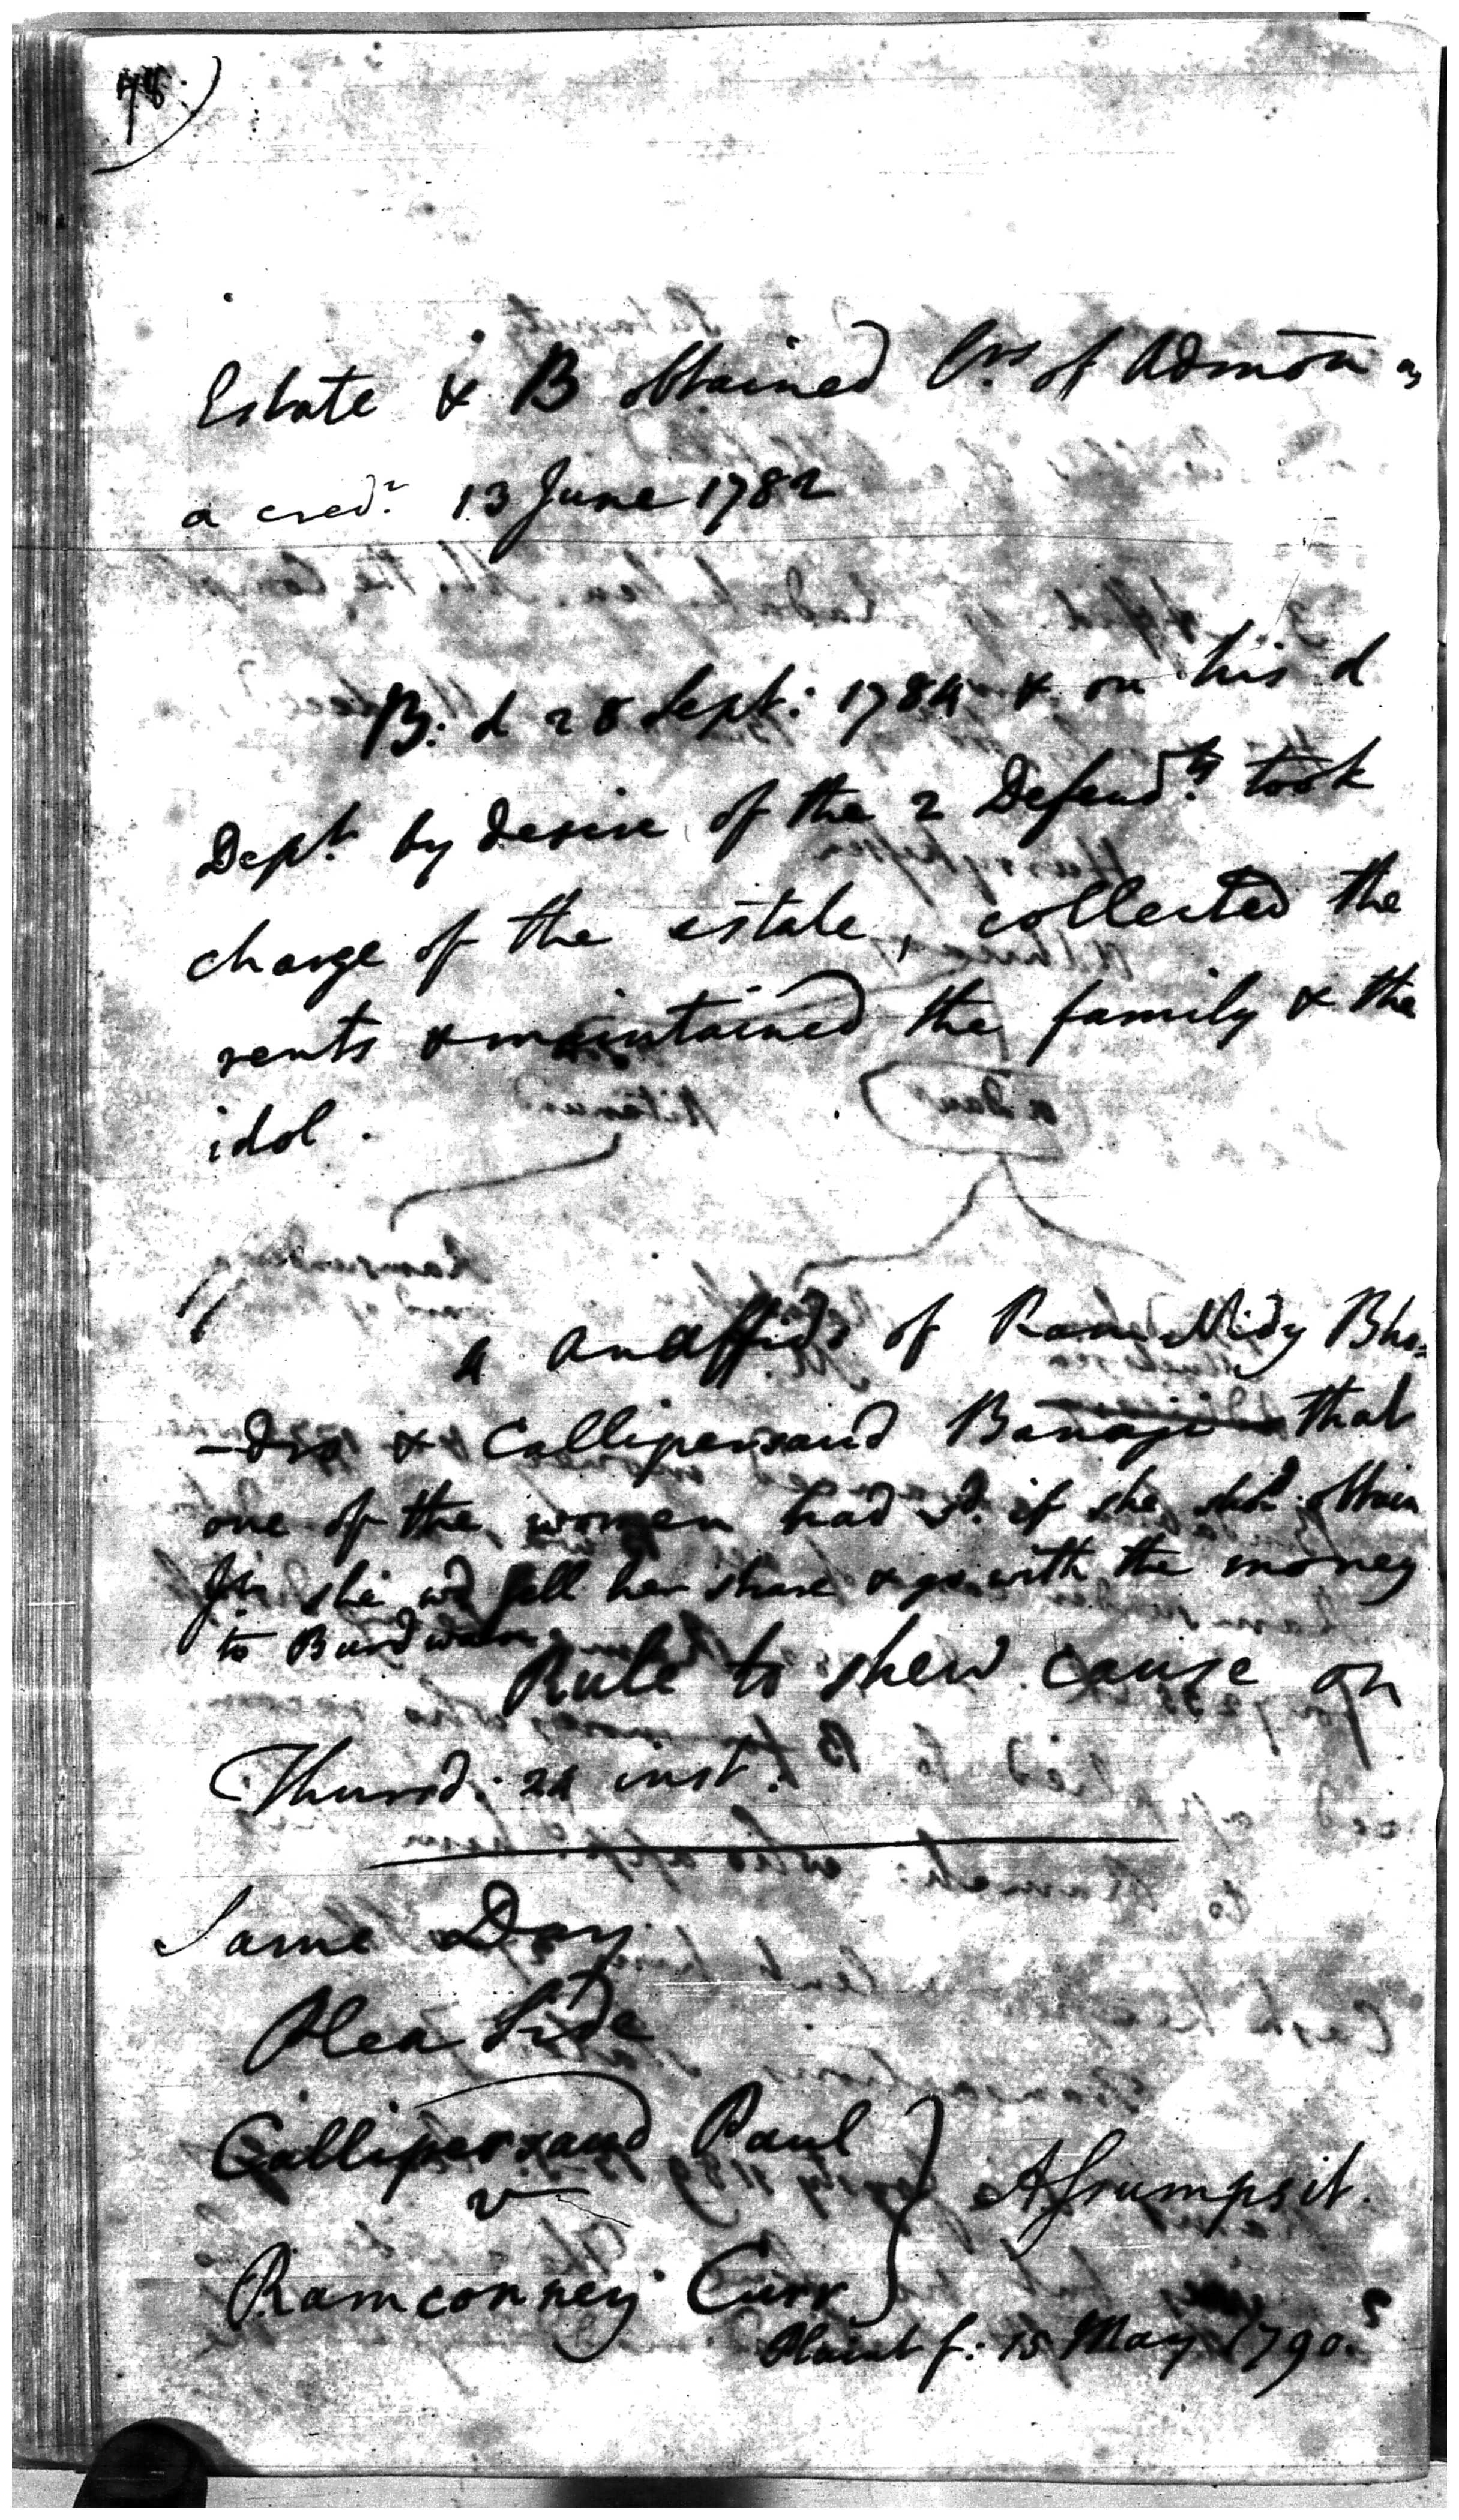 Estate & B obtained Lrs of Admon as
a credr 13 June 1782
B: d 28 Sept: 1784 & on his d
Dept by desire of the 2 Defendts took
charge of the estate, collected the
rents & maintained the family & the
idol.
a anaffidt of Ram Nidy Bho=
& Callipersaud that
one of the women had sd. if she shd. obtain
she wd sell her share & go with the money
to Burdwan
Rule to shew cause on
Thursd. 22 inst.
Same Day
Plea Side
Callipersaud Paul
v
Assumpsit.
Ramconney Curr
Plaint f: 15 May 1790.